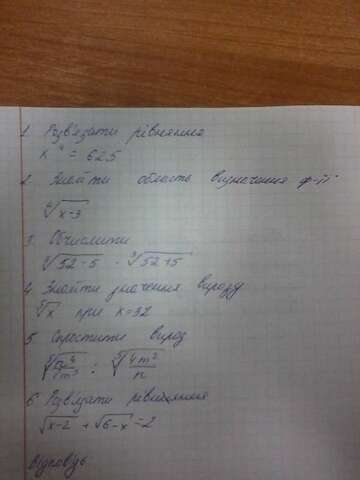 1. Розв'язати рівняння
x⁴ = 625
2. Знайти область визначення ф-ії
⁴√x-3
3. Обчислити
³√52-5 · ³√52+5
4 Знайти значення виразу
⁵√x при x=32
5 Спростити вираз
: ⁵√4m²/n
6 Розв'язати рівняння
√x-2 + √6-x = 2
відповідь